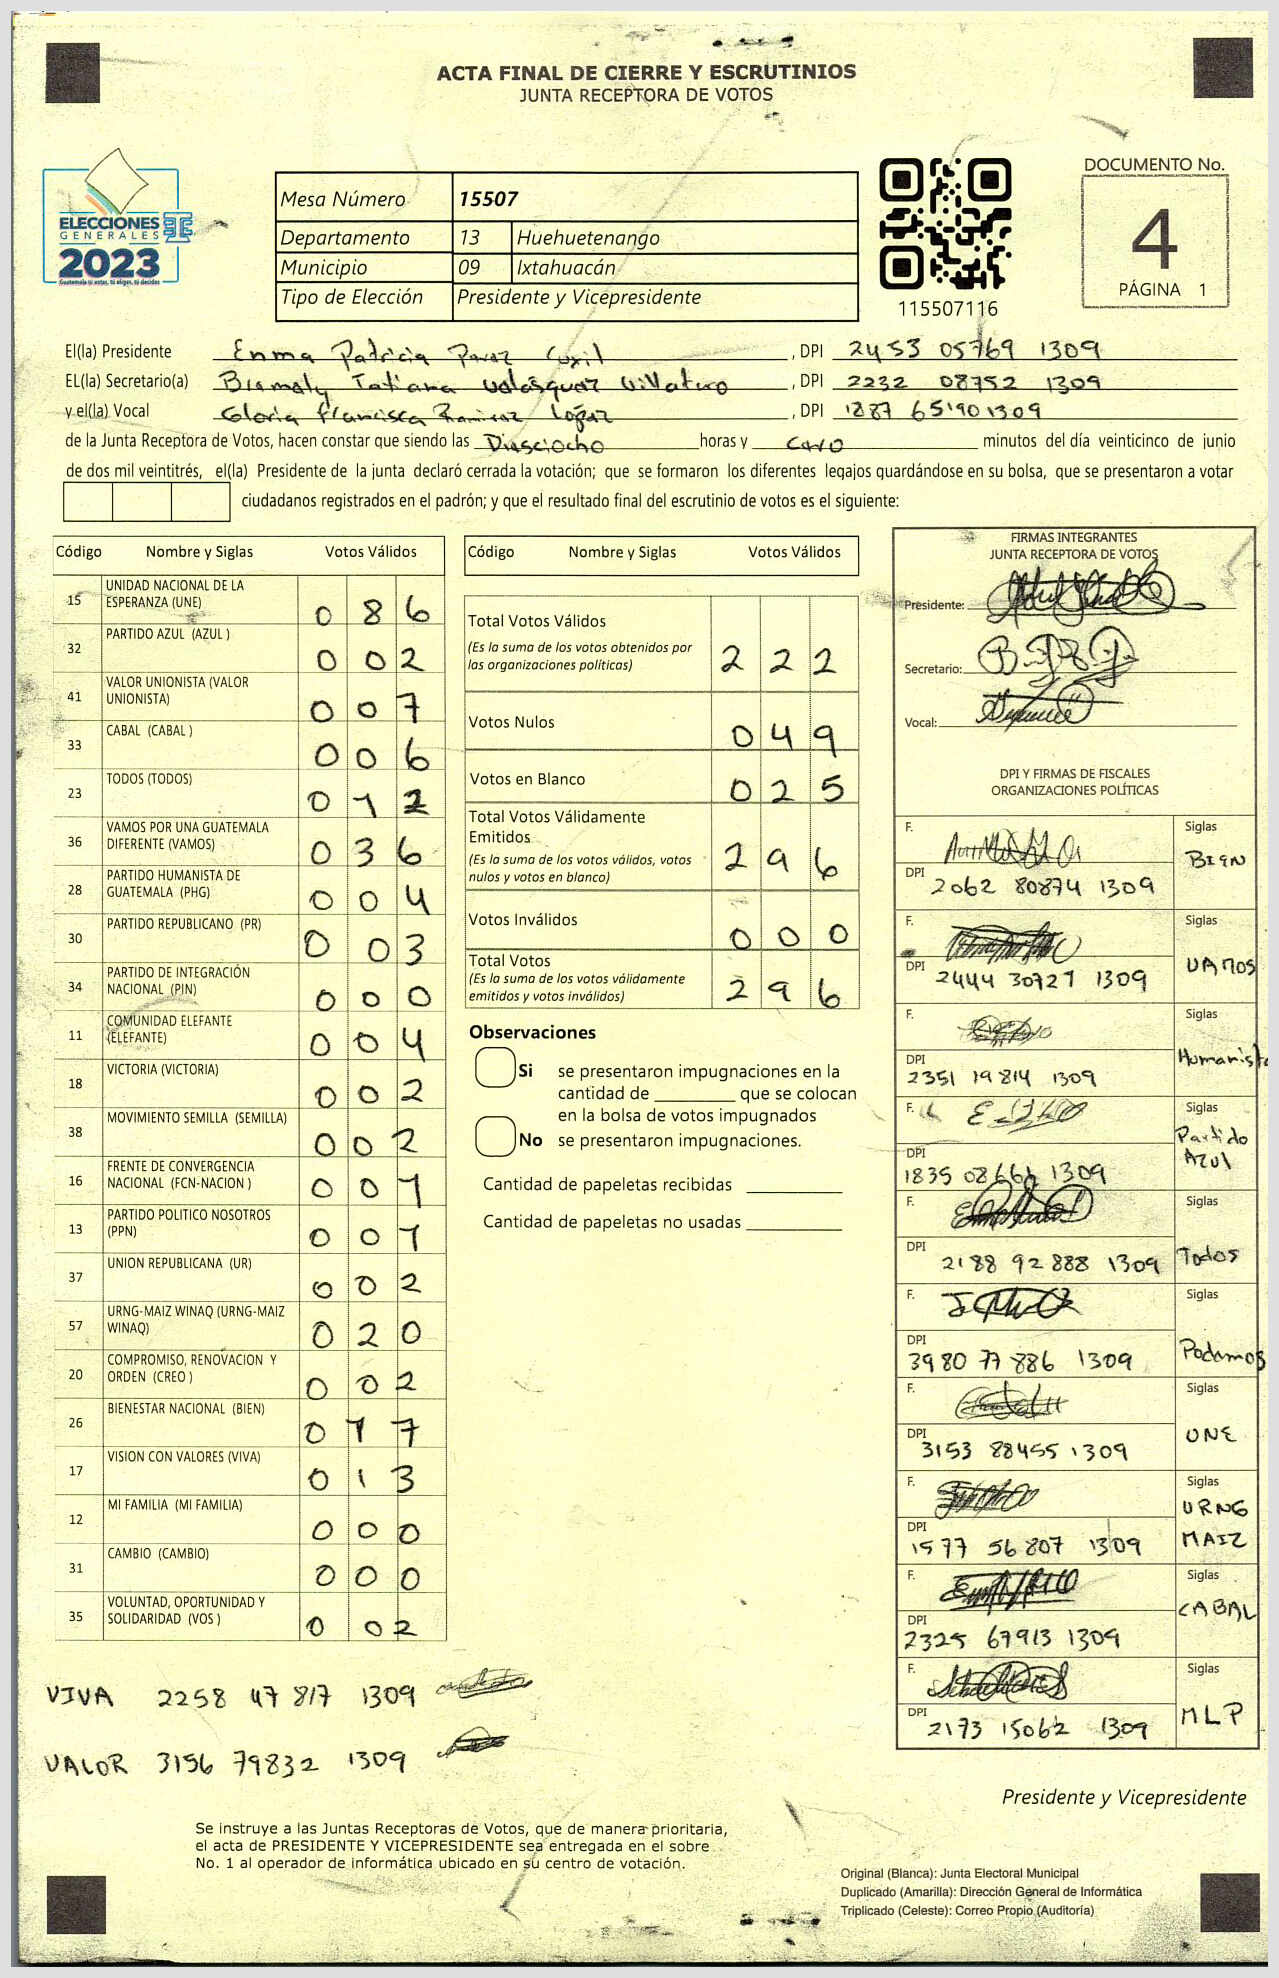 ACTA FINAL DE CIERRE Y ESCRUTINIOS
JUNTA RECEPTORA DE VOTOS
ELECCIONES
GENERALES
2023
Guatemala tú votas, tú eliges, tú decides
Mesa Número 15507
Departamento 13 Huehuetenango
Municipio 09 Ixtahuacán
Tipo de Elección Presidente y Vicepresidente
115507116
DOCUMENTO No.
4
PÁGINA 1
El(la) Presidente Enma Patricia Cuxil , DPI 2453 05769 1309
EL(la) Secretario(a) Tatiana , DPI 2232 08752 1309
y el(la) Vocal Gloria Francisca Ramirez López , DPI 1887 65190 1309
de la Junta Receptora de Votos, hacen constar que siendo las Diesciocho horas y cero minutos del día veinticinco de junio
de dos mil veintitrés, el(la) Presidente de la junta declaró cerrada la votación; que se formaron los diferentes legajos guardándose en su bolsa, que se presentaron a votar
ciudadanos registrados en el padrón; y que el resultado final del escrutinio de votos es el siguiente:
Código Nombre y Siglas Votos Válidos
15 UNIDAD NACIONAL DE LA ESPERANZA (UNE) 0 8 6
32 PARTIDO AZUL (AZUL ) 0 0 2
41 VALOR UNIONISTA (VALOR UNIONISTA) 0 0 7
33 CABAL (CABAL ) 0 0 6
23 TODOS (TODOS) 0 1 2
36 VAMOS POR UNA GUATEMALA DIFERENTE (VAMOS) 0 3 6
28 PARTIDO HUMANISTA DE GUATEMALA (PHG) 0 0 4
30 PARTIDO REPUBLICANO (PR) 0 0 3
34 PARTIDO DE INTEGRACIÓN NACIONAL (PIN) 0 0 0
11 COMUNIDAD ELEFANTE (ELEFANTE) 0 0 4
18 VICTORIA (VICTORIA) 0 0 2
38 MOVIMIENTO SEMILLA (SEMILLA) 0 0 2
16 FRENTE DE CONVERGENCIA NACIONAL (FCN-NACION ) 0 0 1
13 PARTIDO POLITICO NOSOTROS (PPN) 0 0 1
37 UNION REPUBLICANA (UR) 0 0 2
57 URNG-MAIZ WINAQ (URNG-MAIZ WINAQ) 0 2 0
20 COMPROMISO, RENOVACION Y ORDEN (CREO ) 0 0 2
26 BIENESTAR NACIONAL (BIEN) 0 1 7
17 VISION CON VALORES (VIVA) 0 1 3
12 MI FAMILIA (MI FAMILIA) 0 0 0
31 CAMBIO (CAMBIO) 0 0 0
35 VOLUNTAD, OPORTUNIDAD Y SOLIDARIDAD (VOS ) 0 0 2
VIVA 2258 47 817 1309
VALOR 3156 79832 1309
Código Nombre y Siglas Votos Válidos
Total Votos Válidos
(Es la suma de los votos obtenidos por
las organizaciones políticas) 2 2 2
Votos Nulos 0 4 9
Votos en Blanco 0 2 5
Total Votos Válidamente
Emitidos
(Es la suma de los votos válidos, votos
nulos y votos en blanco) 2 9 6
Votos Inválidos 0 0 0
Total Votos
(Es la suma de los votos válidamente
emitidos y votos inválidos) 2 9 6
Observaciones
Si se presentaron impugnaciones en la
cantidad de ________ que se colocan
en la bolsa de votos impugnados
No se presentaron impugnaciones.
Cantidad de papeletas recibidas
Cantidad de papeletas no usadas
FIRMAS INTEGRANTES
JUNTA RECEPTORA DE VOTOS
Presidente:
Secretario:
Vocal:
DPI Y FIRMAS DE FISCALES
ORGANIZACIONES POLÍTICAS
F. Siglas
BIEN
DPI 2062 80874 1309
F. Siglas
VAMOS
DPI 2444 30727 1309
F. Siglas
Humanista
DPI 2351 19814 1309
F. Siglas
Partido
Azul
DPI 1835 08661 1309
F. Siglas
Todos
DPI 2188 92 888 1309
F. Siglas
Podamos
DPI 3980 77 886 1309
F. Siglas
UNE
DPI 3153 88455 1309
F. Siglas
URNG
MAIZ
DPI 1577 56 807 1309
F. Siglas
CABAL
DPI 2325 67913 1309
F. Siglas
MLP
DPI 2173 15062 1309
Presidente y Vicepresidente
Se instruye a las Juntas Receptoras de Votos, que de manera prioritaria,
el acta de PRESIDENTE Y VICEPRESIDENTE sea entregada en el sobre
No. 1 al operador de informática ubicado en su centro de votación.
Original (Blanca): Junta Electoral Municipal
Duplicado (Amarilla): Dirección General de Informática
Triplicado (Celeste): Correo Propio (Auditoría)